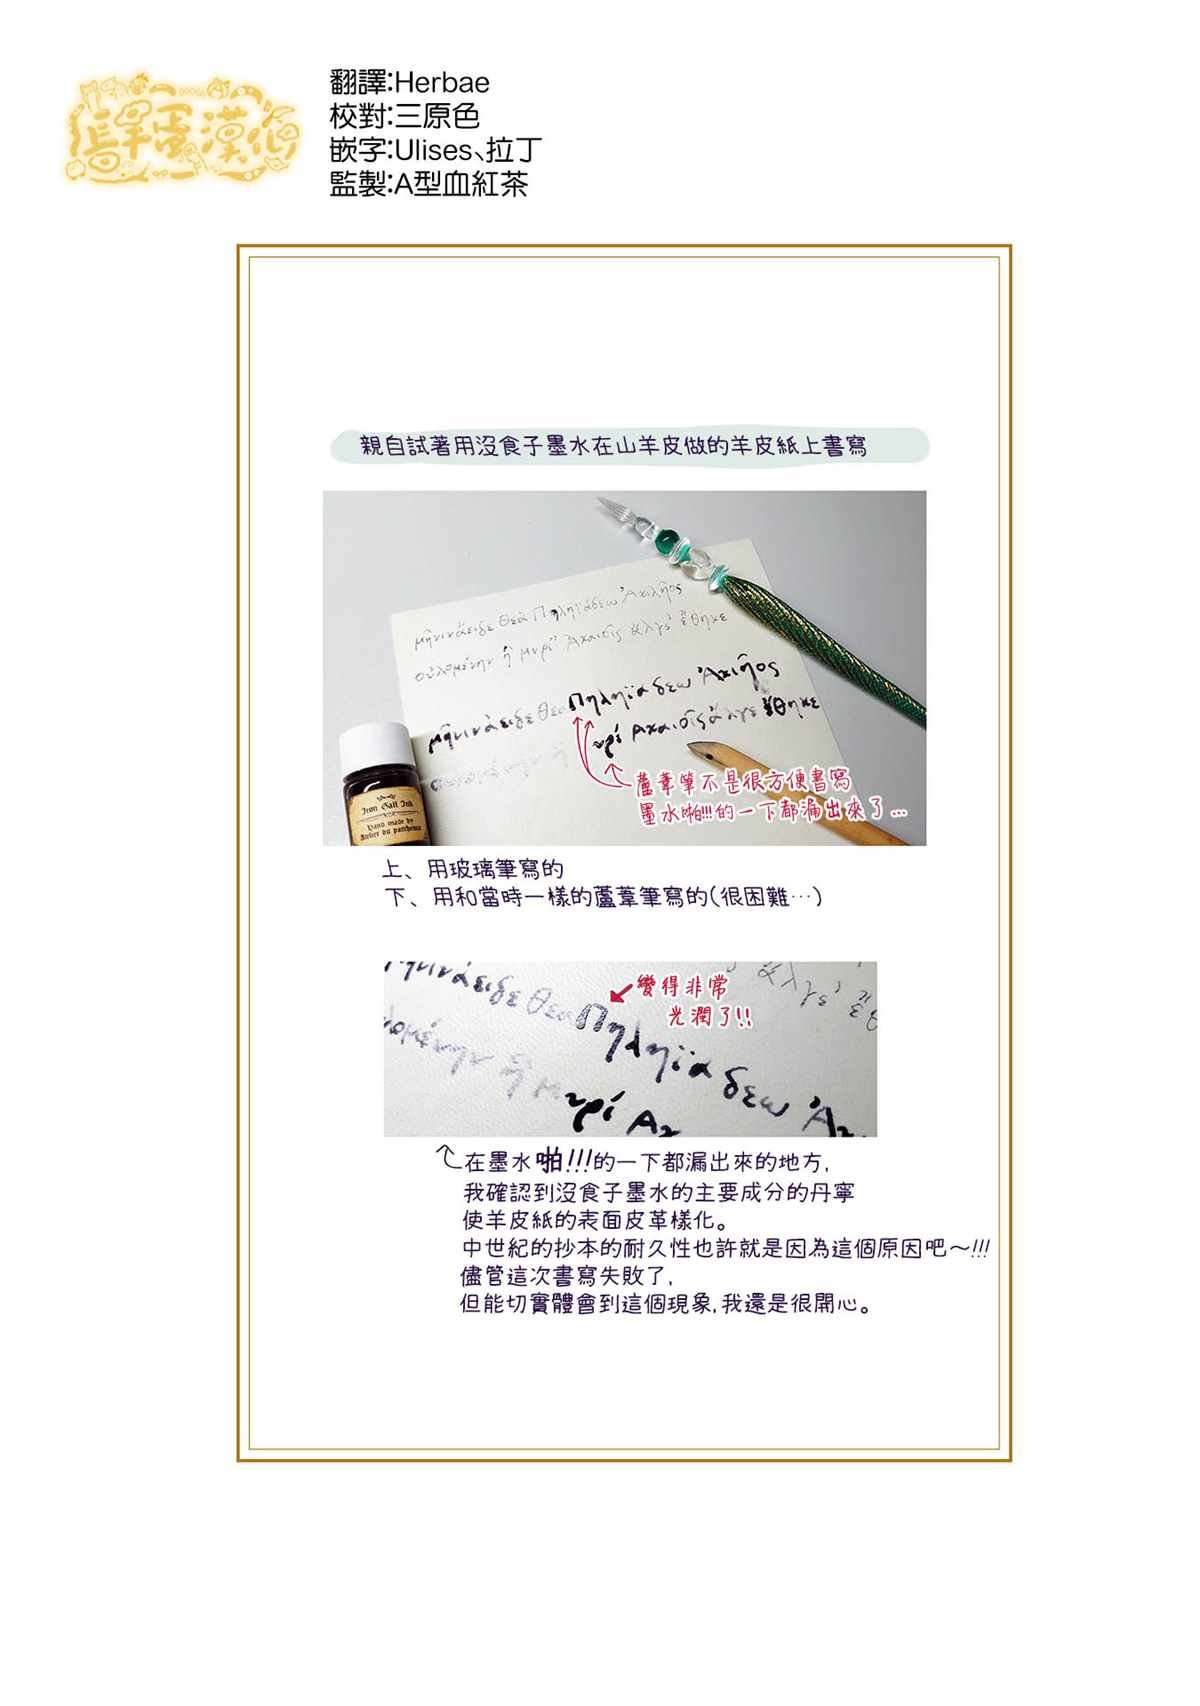 翻譯:Herbae
校對:三原色
嵌字:Ulises、拉丁
監製:A型血紅茶
親自試著用沒食子墨水在山羊皮做的羊皮紙上書寫
μῆνιν ἄειδε θεὰ Πηληϊάδεω Ἀχιλῆος
οὐλομένην ἣ μυρί Ἀχαιοῖς ἄλγε ἔθηκε
μῆνιν ἄειδε θεα Πηληϊαδεω Ἀχιῆος
υρί Αχαιοῖς ἄλγε ἔθηκε
Iron Gall Ink
Hand made by
Atelier du parchemin
蘆葦筆不是很方便書寫
墨水啪!!!的一下都漏出來了...
上、用玻璃筆寫的
下、用和當時一樣的蘆葦筆寫的(很困難…)
變得非常
光潤了!!
μῆνιν ἄειδε θεα Πηληϊα δεω Ἀχ
λομένην ἣ μυρί Αχ
在墨水啪!!!的一下都漏出來的地方,
我確認到沒食子墨水的主要成分的丹寧
使羊皮紙的表面皮革樣化。
中世紀的抄本的耐久性也許就是因為這個原因吧～!!!
儘管這次書寫失敗了,
但能切實體會到這個現象,我還是很開心。